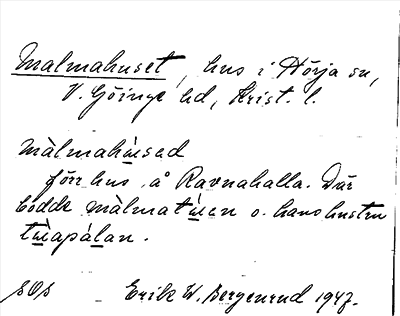 Malmahuset, hus i Hörja sn,
V. Göinge hd, Krist. l.
màlmahúsed
förr hus å Ravnahalla. Där
bodde màlmatúen o. hans hustru
túapálan.
sOs Erik W. Bergenrud 1947.